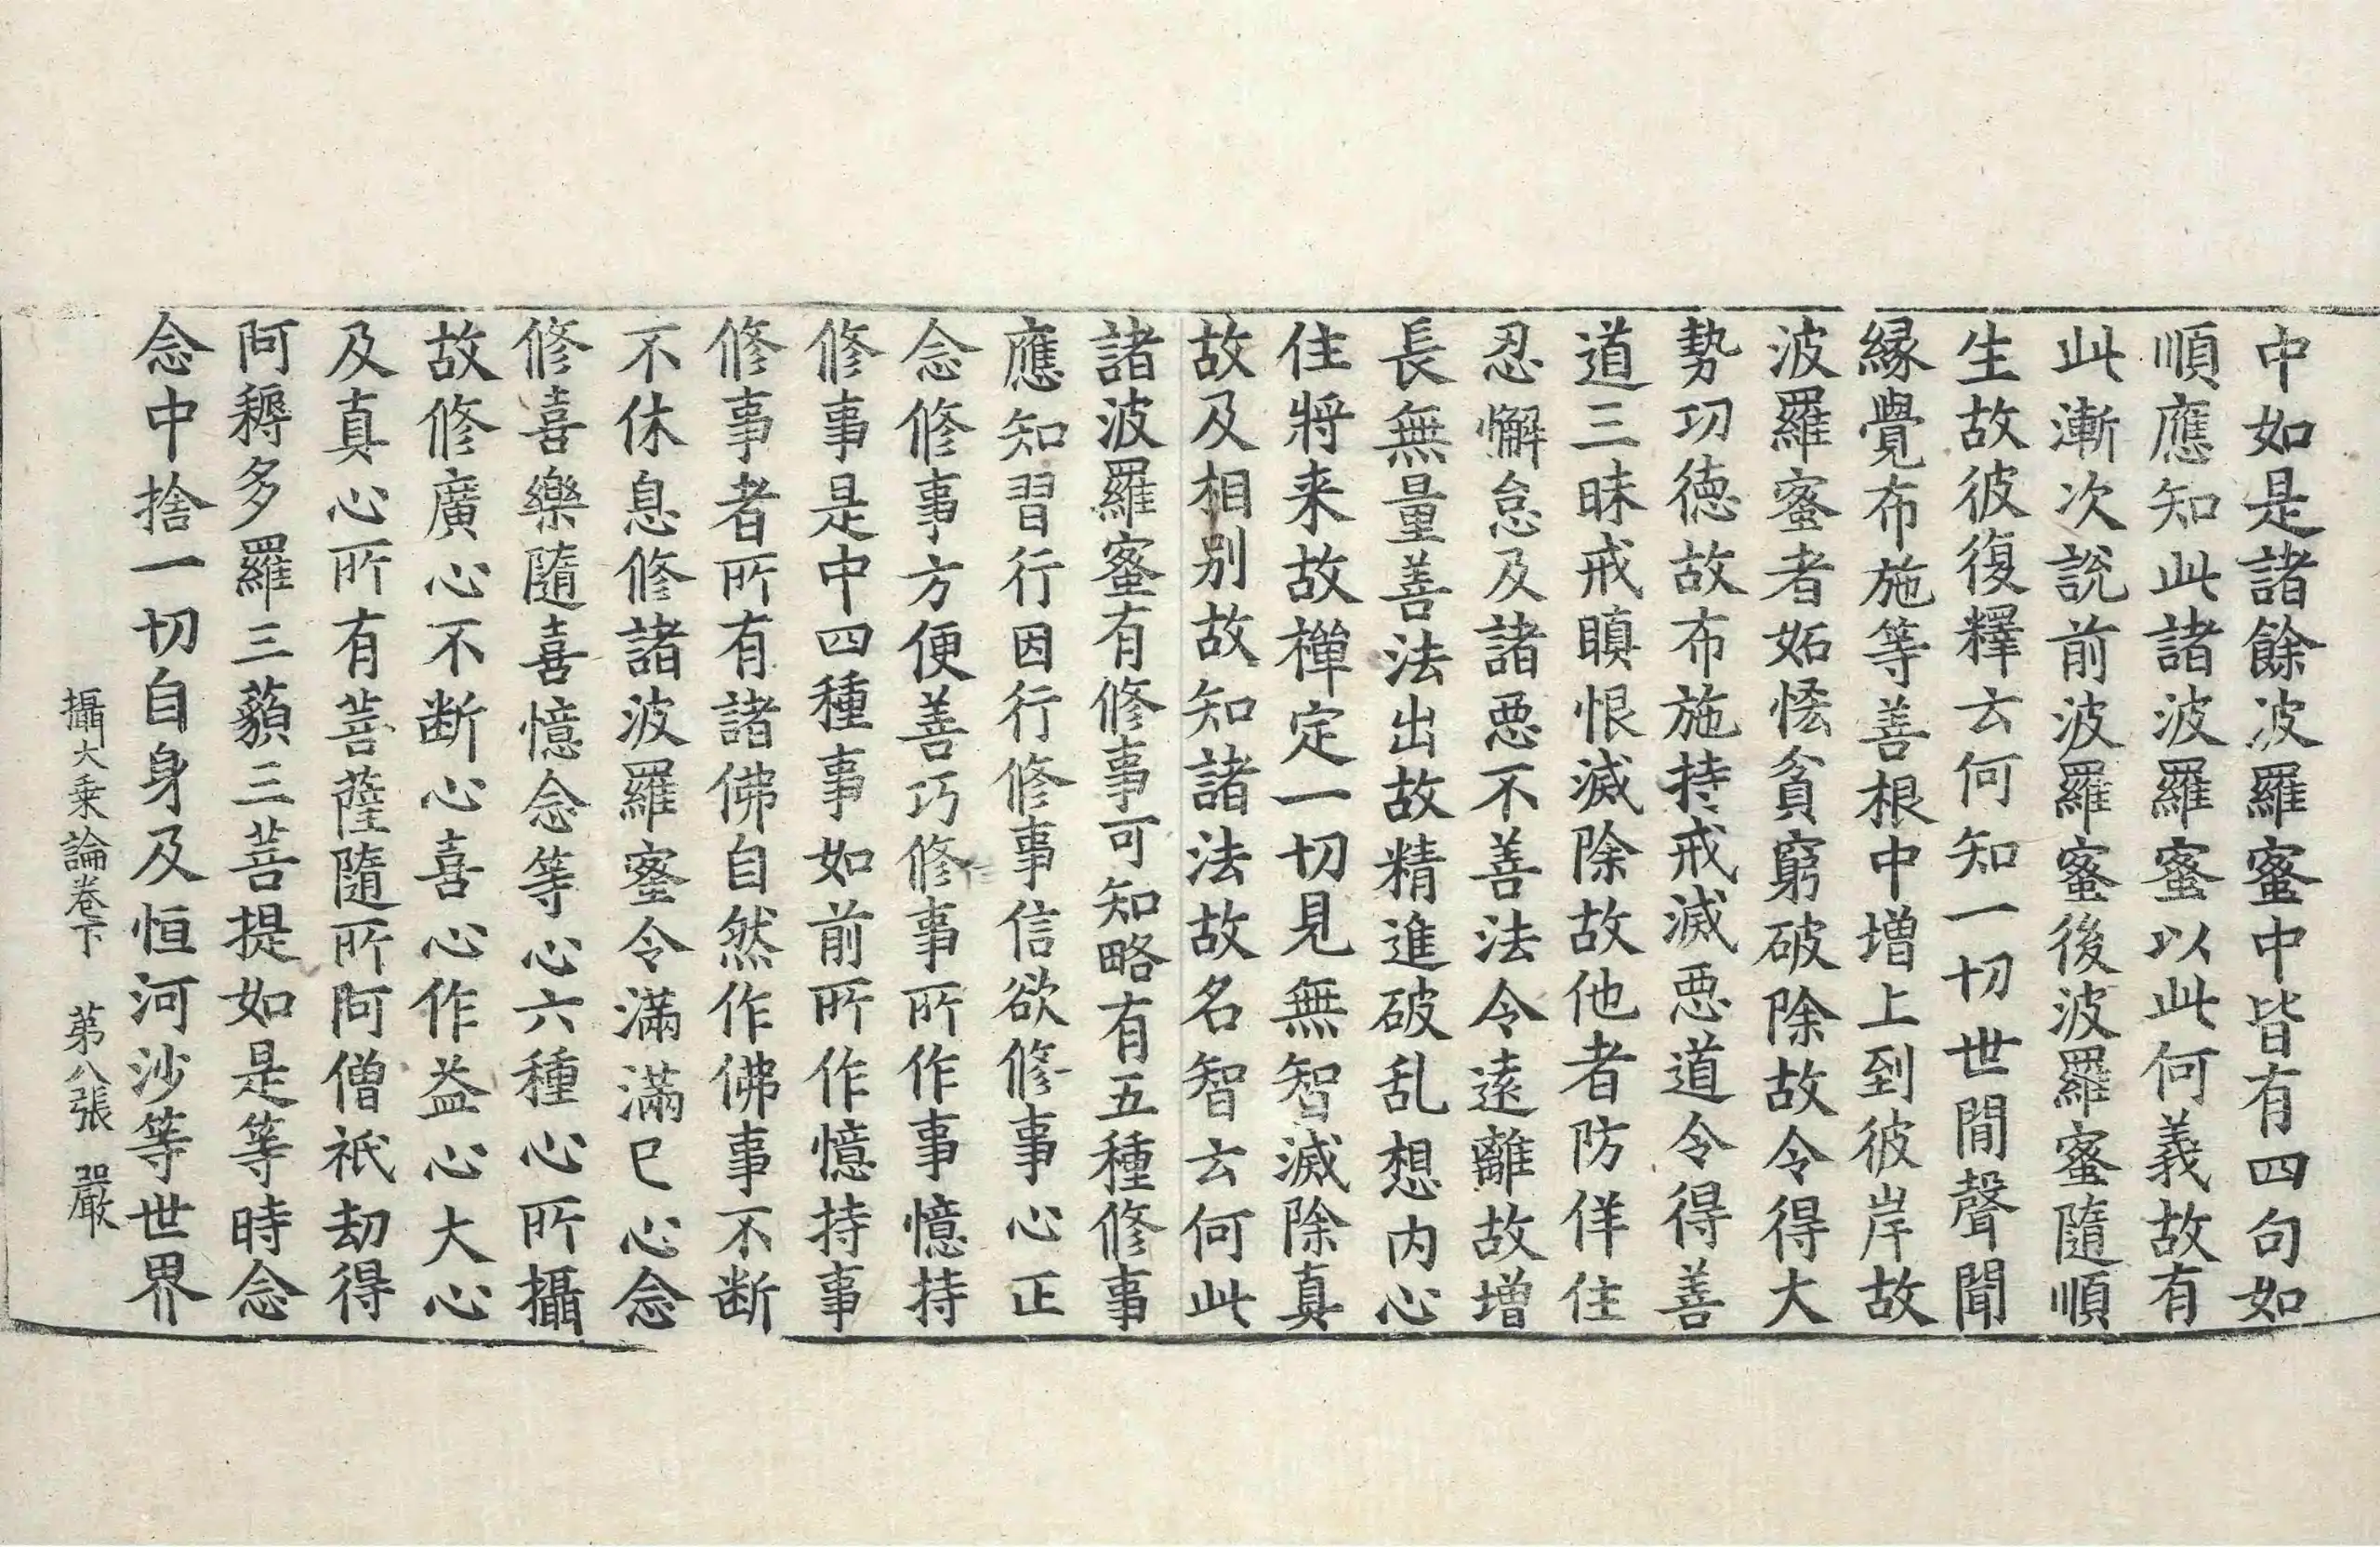 中如是諸餘波羅蜜中皆有四句如
順應知此諸波羅蜜以此何義故有
此漸次說前波羅蜜後波羅蜜隨順
生故彼復釋云何知一切世間聲聞
緣覺布施等善根中增上到彼岸故
波羅蜜者妬悋貧窮破除故令得大
勢功德故布施持戒滅惡道令得善
道三昧戒瞋恨滅除故他者防佯住
忍懈怠及諸惡不善法令遠離故增
長無量善法出故精進破乱想內心
住將来故禪定一切見無智滅除真
故及相別故知諸法故名智云何此
諸波羅蜜有修事可知略有五種修事
應知習行因行修事信欲修事心正
念修事方便善巧修事所作事憶持
修事是中四種事如前所作憶持事
修事者所有諸佛自然作佛事不断
不休息修諸波羅蜜令滿滿已心念
修喜樂隨喜憶念等心六種心所攝
故修廣心不断心喜心作益心大心
及真心所有菩薩隨所阿僧祇劫得
阿耨多羅三藐三菩提如是等時念
念中捨一切自身及恒河沙等世界
攝大乗論卷下 第八張 嚴